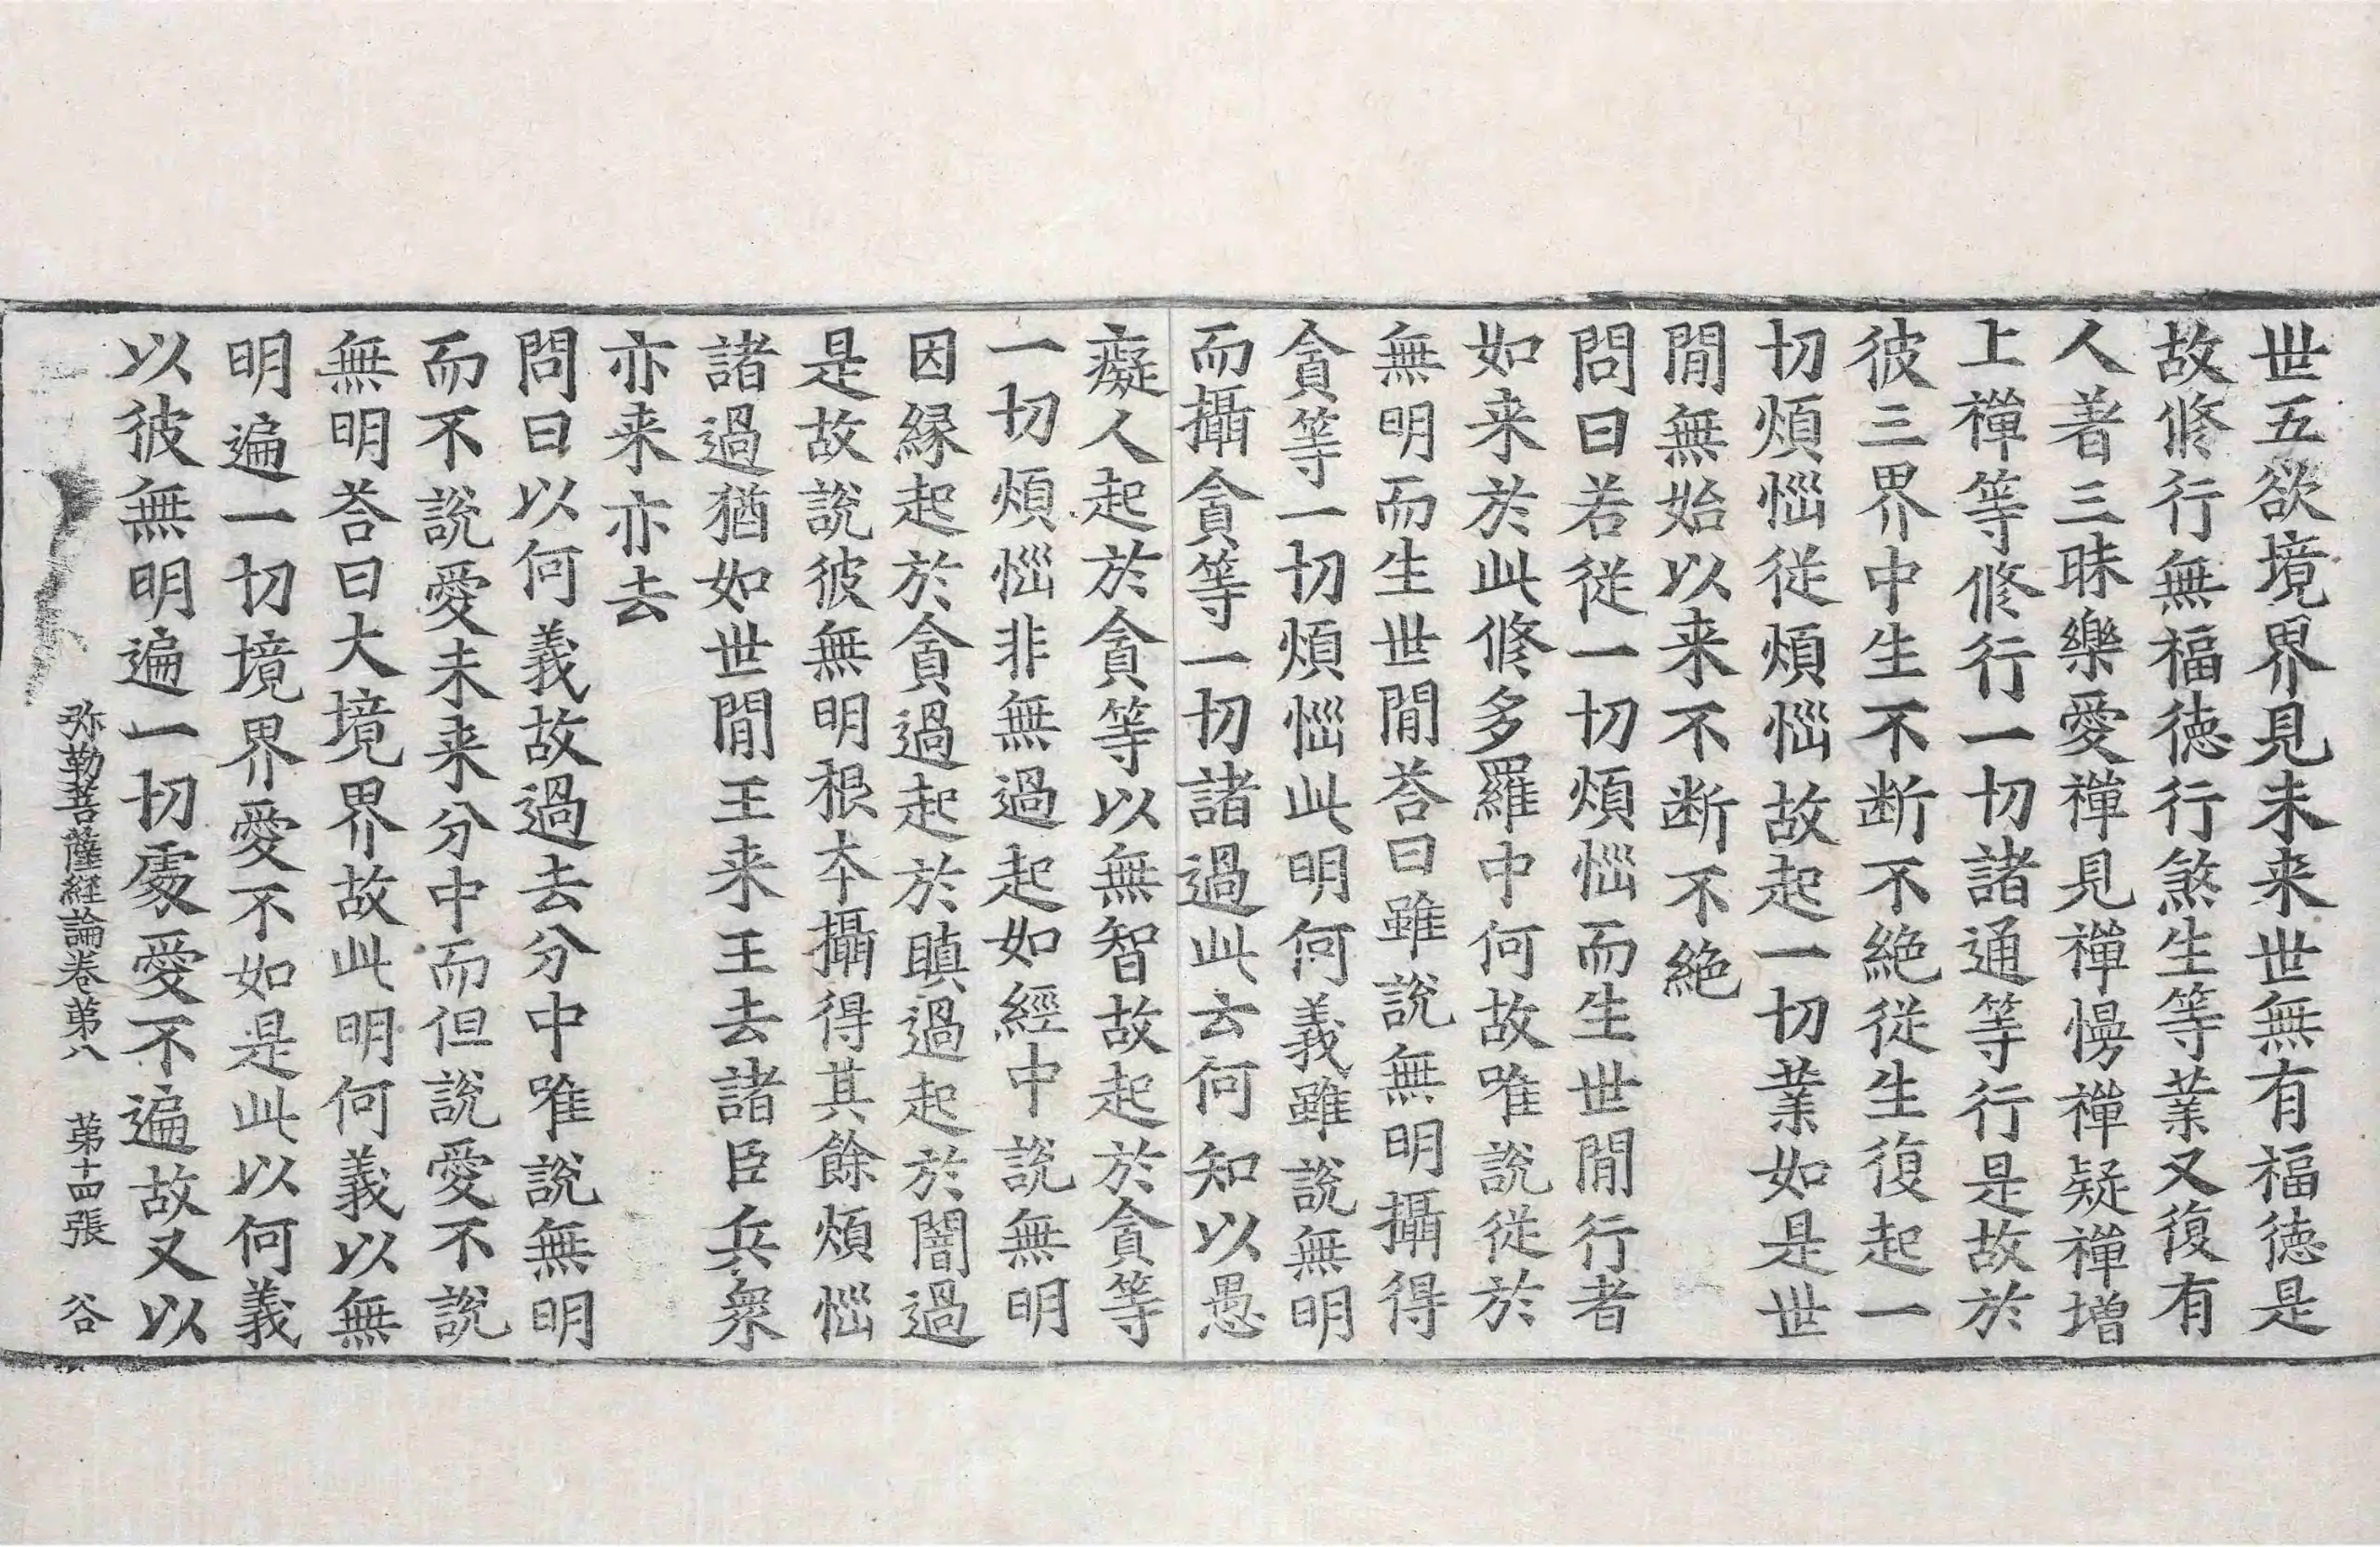 世五欲境界見未来世無有福德是
故修行無福德行煞生等業又復有
人著三昧樂愛禪見禪慢禪疑禪增
上禪等修行一切諸通等行是故於
彼三界中生不断不絶從生復起一
切煩惱從煩惱故起一切業如是世
閒無始以来不断不絶
問曰若從一切煩惱而生世閒行者
如来於此修多羅中何故唯說從於
無明而生世閒荅曰雖說無明攝得
貪等一切煩惱此明何義雖說無明
而攝貪等一切諸過此云何知以愚
癡人起於貪等以無智故起於貪等
一切煩惱非無過起如經中說無明
因縁起於貪過起於瞋過起於闇過
是故說彼無明根本攝得其餘煩惱
諸過猶如世閒王来王去諸臣兵衆
亦来亦去
問曰以何義故過去分中唯說無明
而不說愛未来分中而但說愛不說
無明荅曰大境界故此明何義以無
明遍一切境界愛不如是此以何義
以彼無明遍一切處愛不遍故又以
弥勒菩薩経論卷第八 第十四張 谷